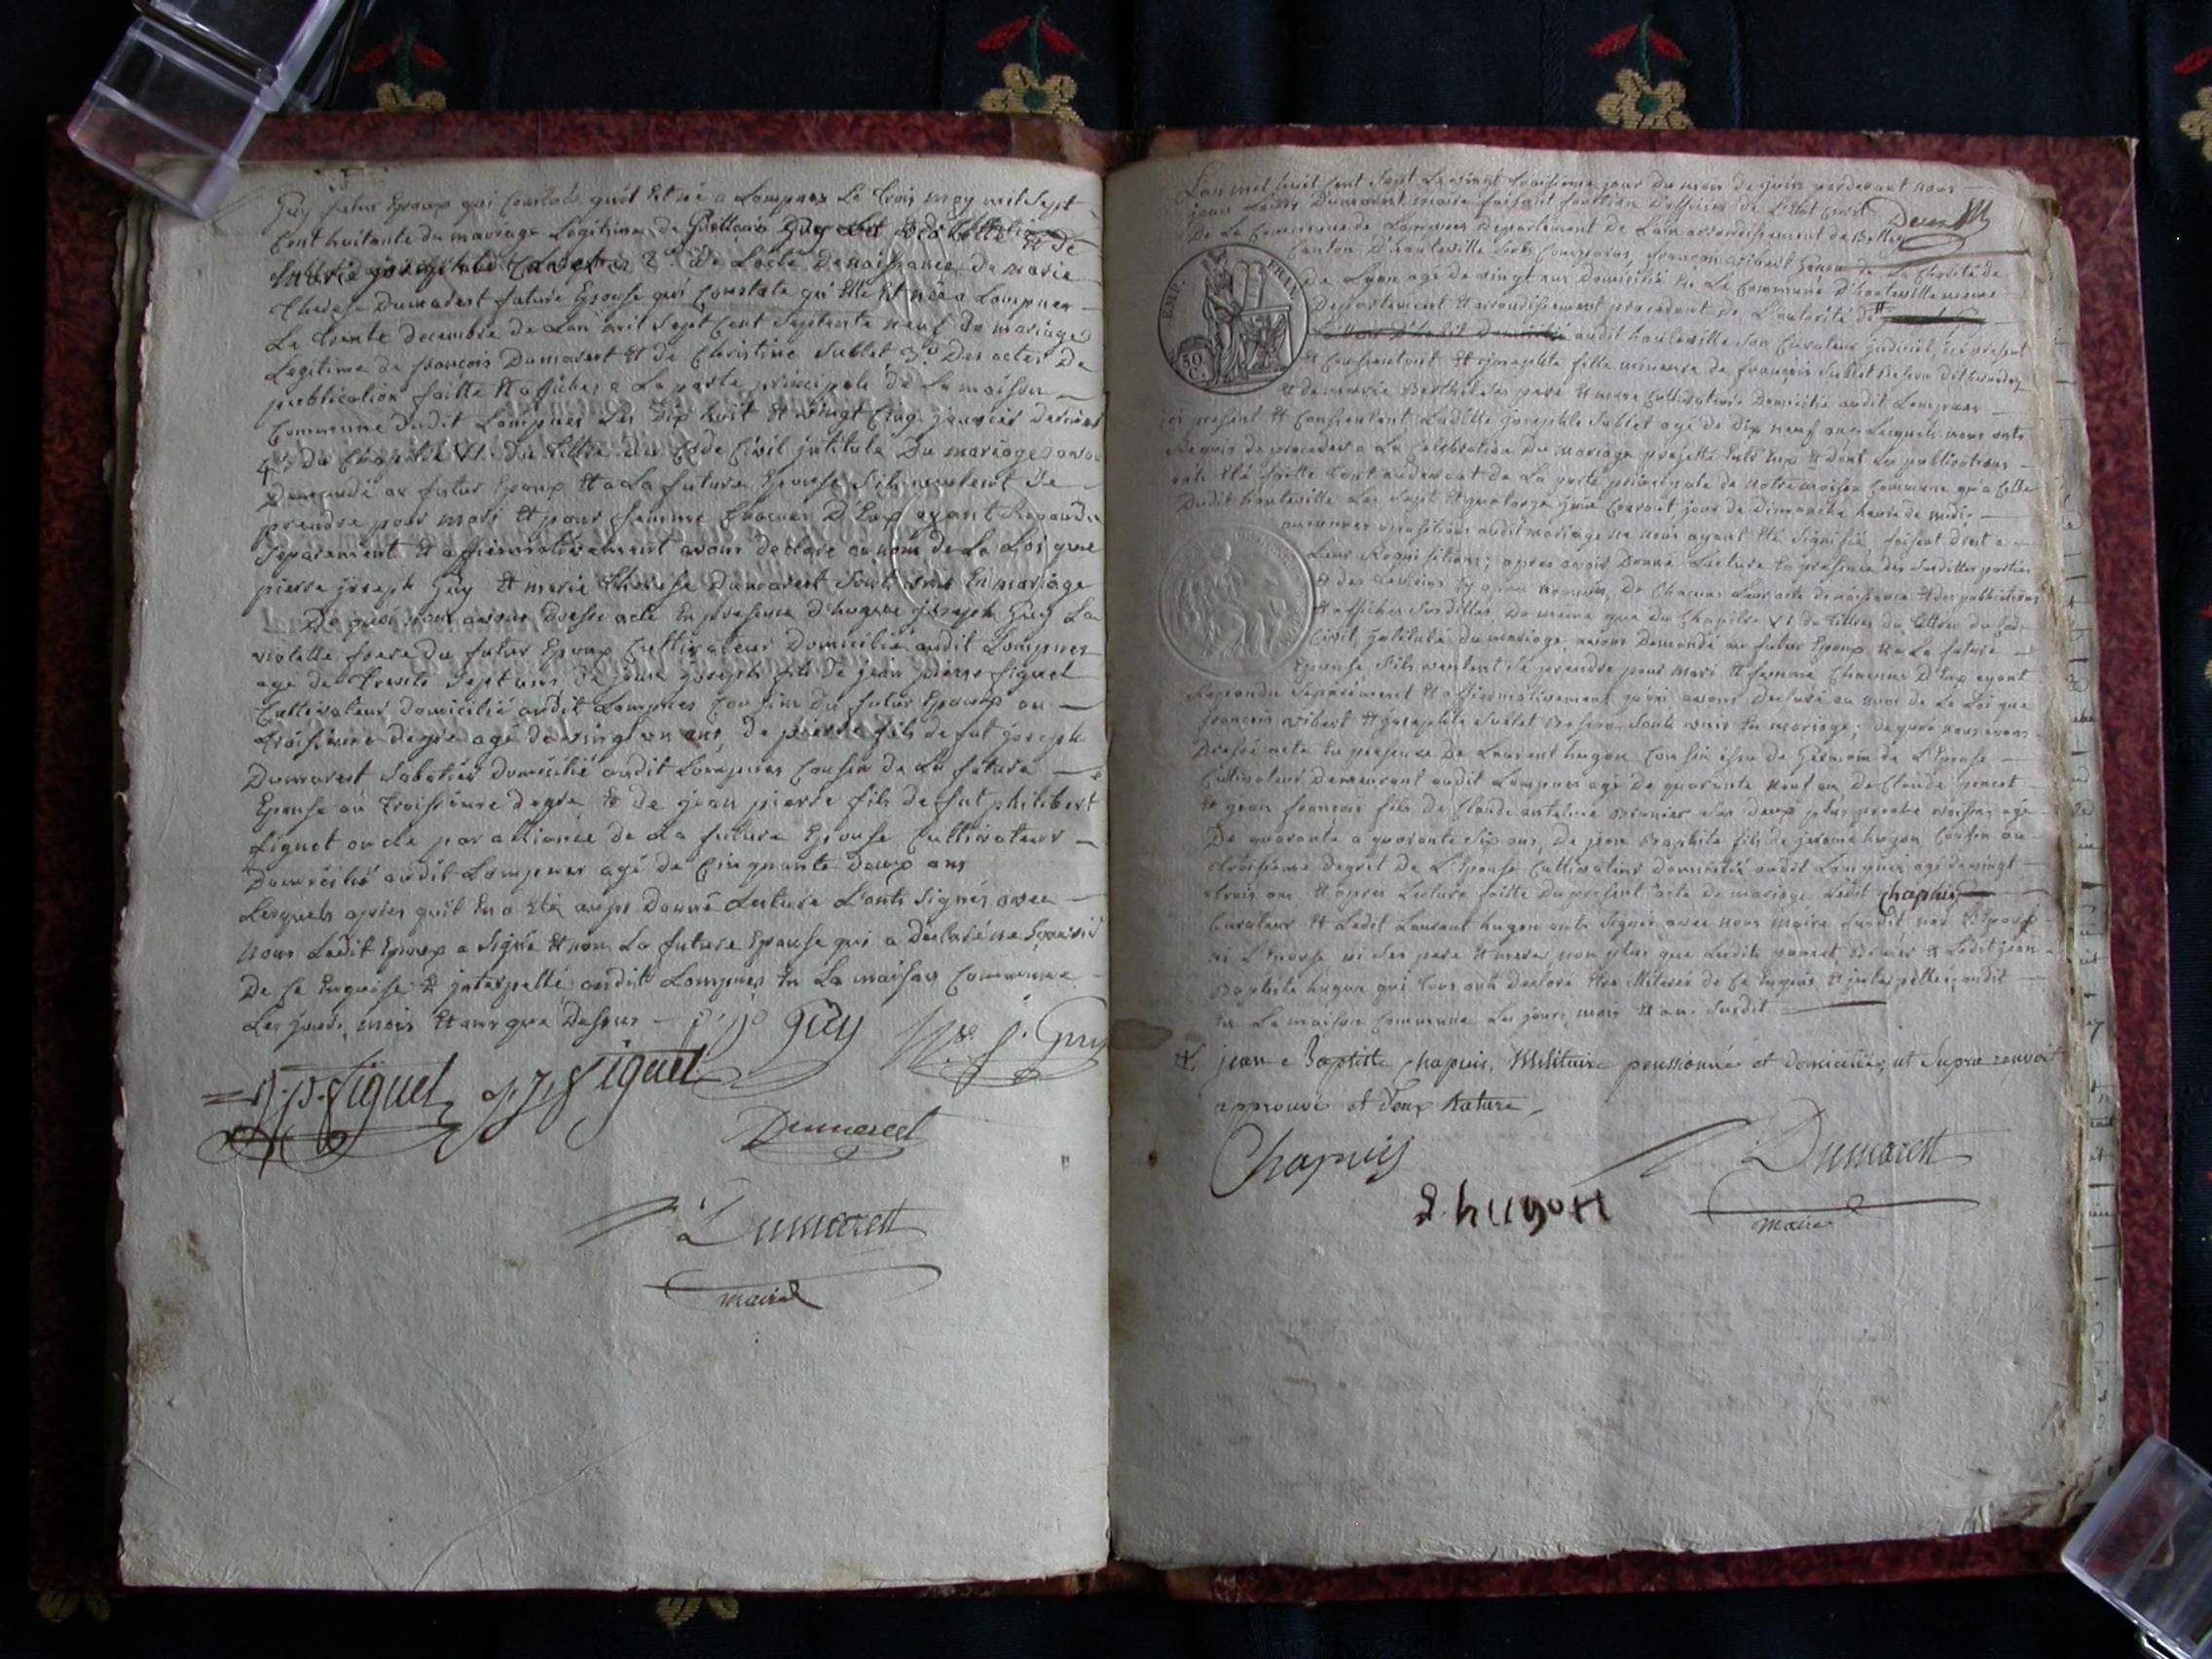 Guy futur Epoux qui Constate qu'il Et né a Lompnes Le trois may mil Sept
Cent huitante du mariage Legitime de Guy et de
2° de Lacte De naissance de marie
therese Dumarest future Epouse qui Constate qu'Elle Et née a Lompnes
Le trente decembre de Lan mil Sept Cent Septante neuf du mariage
Legitime de françois Dumarest Et de Christine Sublet 3° Des actes De
publication faitte Et affichés a La porte principale de La maison
Commune dudit Lompnes Les Dix huit Et vingt Cinq janvier dernier
4° du Chapitre VI du tittre du Code Civil intitulé Du mariage avons
Demandé au futur Epoux Et a La future Epouse S'ils veulent Se
prendre pour mari Et pour femme Chacun D'Eux ayant Repondu
Separement Et affirmativement avons declaré au nom de La Loi que
pierre joseph Guy Et marie therese Dumarest Sont unis En mariage
De quoi nous avons dressé acte En presence d'hugues joseph Guy La
violette frere du futur Epoux Cultivateur Domicilié audit Lompnes
agé de trente Sept ans de joseph fils de jean pierre figuet
Cultivateur domicilié audit Lompnes Cousin du futur Epoux au
troisieme degré agé de vingt un ans, de pierre fils de fut joseph
Dumarest Sabotier domicilié audit Lompnes Cousin de La future
Epouse au troisieme degré Et de jean pierre fils de fut philibert
figuet oncle par alliance de La future Epouse Cultivateur
Domicilié audit Lompnes agé de Cinquante deux ans
Lesquels après qu'il En a Eté donné Lecture L'ont Signés avec
nous Ledit Epoux a Signé Et non La future Epouse qui a declaré ne Scavoir
De Ce Enquise Et interpellé audit Lompnes En La maison Commune
Les jours, mois Et ans que Dessus
p. jo Guy
j. Guy
j.p. figuet
j. figuet
Dumarest
Dumarest
maire
L'an mil huit Cent Sept Le vingt troisieme jour du mois de juin pardevant nous
jean Dumarest maire faisant fonction D'officier de L'Etat Civil
De La Commune de Lompnes Departement De Lain arrondissement de Belley
Canton D'hauteville Sont Comparus, françois wibert de La Charité de
Lyon agé de vingt un Domicilié En La Commune D'hauteville meme
Departement Et arrondissement procedant De L'autorité de
audit hauteville Son Curateur judiciel, ici present
Et Consentant Et josephte fille mineure de françois Sublet Besson dit
Et de marie Berthet Ses pere Et mere Cultivateurs Domicilié audit Lompnes
ici present Et Consentant Laditte josephte Sublet agé de Dix neuf ans Lesquels nous ont
Requis de proceder a La Celebration Du mariage projetté Entr'Eux Et dont Les publications
ont Eté faitte tant audevant de La porte principale de Notre maison Commune qu'a Celle
Dudit hauteville Les Sept Et quatorze juin Courant jour de Dimanche heure de midi
aucunes oppositions audit mariage ne nous ayant Eté Signifié, faisant droit a
Leur Requisitions; apres avoir Donné Lecture En presence des Susdittes parties
Et des temoins De Chacun Leur acte de naissance Et des publications
Et affiches Susdittes De meme que du Chapitre VI du tittre du Code
Civil, intitulé du mariage, avons Demandé au futur Epoux Et a La future
Epouse S'ils veulent Se prendre pour Mari Et femme Chacun D'Eux ayant
Repondu Separément Et affirmativement avons Declaré au nom de La Loi que
françois wibert Et josephte Sublet Besson Sont unis En mariage; de quoi nous avons
Dressé acte En presence De Laurent hugon Cousin issu de Germain de L'Epouse
Cultivateur Demeurant audit Lompnes agé De quarante neuf ans De Claude
Et jean françois fils de Claude antelme Les deux plus proche voisins agé
De quarante a quarante Six ans, De jean Baptiste fils de jerome hugon Cousin au
troisieme degret de L'Epouse Cultivateur domicilié audit Lompnes agé de vingt
trois ans Et apres Lecture faitte Du present acte de mariage Ledit Chapuis
Curateur Et Ledit Laurent hugon onts Signés avec nous Maire Susdit non L'Epoux
ni L'Epouse ni Les pere Et mere non plus que Lesdits Et Ledit jean
Baptiste hugon qui tous ont Declaré Etre illiterés de Ce Enquis Et interpellés, audit
En La maison Commune Les jours, mois Et an Susdit
jean Baptiste Chapuis, Militaire pensionné et domicilié, ut Supra renvoit
approuvé et deux Rature
Chapuis
Dumarest
L. hugon
maire
EMP. FRAN.
50 C.